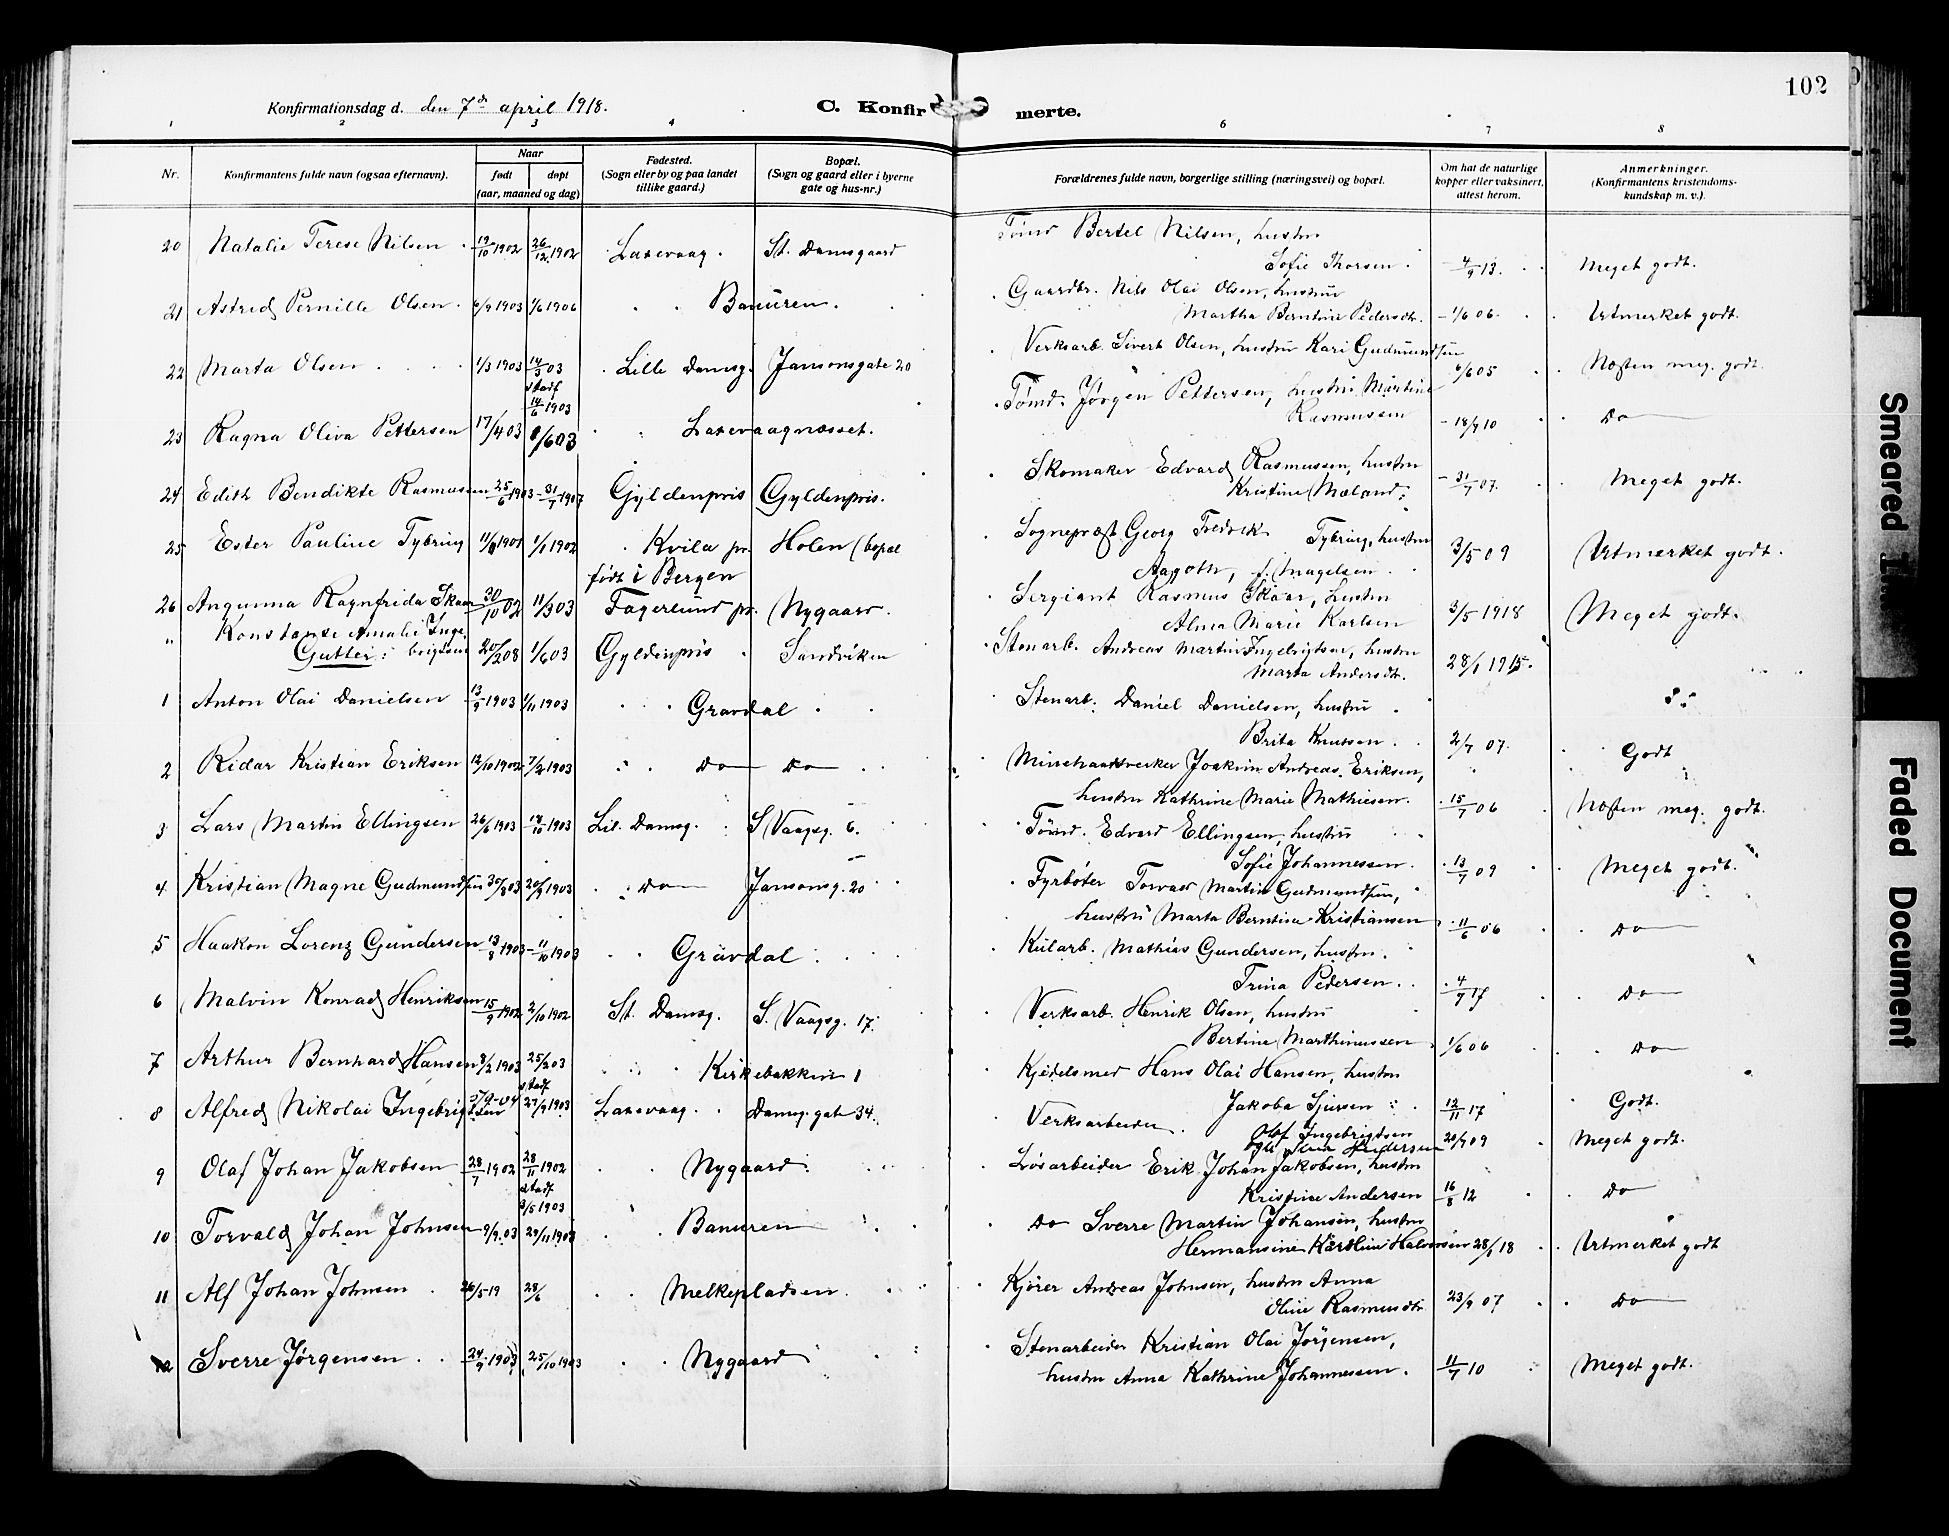 102
Konfirmationsdag d. den 7de april 1918.
C. Konfirmerte.
1 2 3 4 6 7 8
Nr.
Konfirmantens fulde navn (ogsaa efternavn).
Naar
født døpt
(aar, maaned og dag)
Fødested.
(Sogn eller by og paa landet
tillike gaard.)
Bopæl.
(Sogn og gaard eller i byerne
gate og hus-nr.)
Forældrenes fulde navn, borgerlige stilling (næringsvei) og bopæl.
Om hat de naturlige
kopper eller vaksinert,
attest herom.
Anmerkninger.
(Konfirmantens kristendoms-
kundskap m. v.).
20 Natalie Terese Nilsen 19/10 1902 26/12 1902 Laxevaag. St. Damsgaard Tømd Bertel Nilsen, hustru
Sofie Thorsen. 4/9 13. Meget godt.
21 Astrid Pernille Olsen 6/9 1903 1/6 1906 Banuren. Gaardbr. Nils Olai Olsen, hustru
Martha Berntine Pedersdtr. 1/6 06. Utmerket godt.
22 Marta Olsen 1/3 1903 14/3 03 Lille Damsg. Jansonsgate 20 Verksarb. Sivert Olsen, hustru Kari Gudmundsen 6/6 05 Næsten meg. godt.
stadf. 14/6 1903
23 Ragna Oliva Pettersen 17/4 03 1/6 03 Laxevaagnæsset. Tømd. Jørgen Pettersen, hustru Martine
Rasmussen 18/9 10 Do
24 Edith Bendikte Rasmussen 25/6 1903 31/7 1907 Gyldenpris Gyldenpris. Skomaker Edvard Rasmussen, hustru
Kristine Mæland. 31/7 07. Meget godt.
25 Ester Pauline Tybring 11/9 1901 1/1 1902 Kvila pr. Holen (bopæl Sogneprest Georg Fredrik Tybring, hustru
født i Bergen Aagoth, f. Magelsen 3/5 09 Utmerket godt.
26 Angunna Ragnfrida Skaar 30/10 02 11/3 03 Fagerlund pr. Nygaard. Sergiant Rasmus Skaar, hustru
Alma Marie Karlsen 3/5 1918 Meget godt.
" Konstanse Amalie Inge-
brigtsen 20/2 08 1/6 03 Gyldenpris Sandviken Stenarb. Andreas Martin Ingebrigtsen, hustru
Marta Andersdt. 28/1 1915.
Gutter:
1 Anton Olai Danielsen 13/9 1903 1/11 1903 Gravdal Stenarb. Daniel Danielsen, hustru
Brita Knutsen. 2/7 07. Godt
2 Ridar Kristian Eriksen 12/10 1902 7/2 1903 Do Do Minehaandverker Joakim Andreas Eriksen,
hustru Kathrine Marie Mathiesen. 15/7 06 Næsten meg. godt.
3 Lars Martin Ellingsen 26/6 1903 14/10 1903 Lil. Damsg. S. Vaagsg. 6. Tømd. Edvard Ellingsen, hustru
Sofie Johannessen. 13/7 09 Meget godt.
4 Kristian Magne Gudmundsen 30/8 03 20/9 1903 Do Jansonsg. 20 Fyrbøter Torvald Martin Gudmundsen,
hustru Marta Berntina Kristiansen 11/6 06 Do
5 Haakon Lorenz Gundersen 13/8 1903 11/10 1903 Gravdal Kularb. Mathias Gundersen, hustru
Trina Pedersen. 4/9 17 Do
6 Malvin Konrad Henriksen 15/9 1902 2/10 1902 St. Damsg. S. Vaagsg. 17. Verksarb. Henrik Olsen, hustru
Bertine Marthinussen 1/6 06 Do
7 Arthur Bernhard Hansen 8/2 1903 25/2 03 Kirkebakken 1 Kjedelsmed Hans Olai Hansen, hustru
Jakoba Sjursen 12/11 17 Godt.
8 Alfred Nikolai Ingebrigtsen 5/9-04 stadf. 27/9 1903 Laxevaag. Damsg. gate 34. Verksarbeider. Olaf Ingebrigtsen
20/9 09 Meget godt.
9 Olaf Johan Jakobsen 28/7 1902 28/11 1902 Nygaard Løsarbeider Erik Johan Jakobsen, hustru
stadf. 3/5 1903 Kristine Andersen 16/8 12 Do
10 Torvald Johan Johnsen 9/9 03 29/11 1903 Banuren Do Sverre Martin Johansen, hustru
Hermansine Karoline Halvorsen 28/1 18 Utmerket godt
11 Alf Johan Johnsen 26/5-19 28/6 Melkepladsen Kjører Andreas Johnsen, hustru Anna
Oline Rasmusdtr 23/9 07 Do
12 Sverre Jørgensen 24/9 1903 25/10 1903 Nygaard Stenarbeider Kristian Olai Jørgensen,
hustru Anna Kathrine Johannessen. 11/7 10 Meget godt.
Smeared
Faded Document